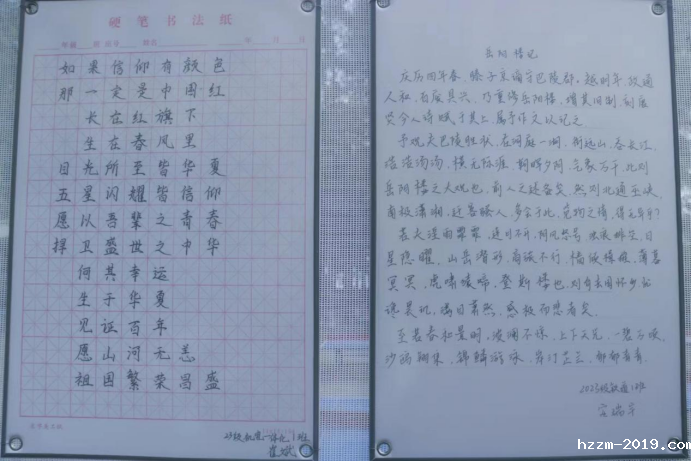 硬笔书法纸
年级 班 姓名 年 月 日
如果信仰有颜色
那一定是中国红
长在红旗下
生在春风里
目光所至皆华夏
五星闪耀皆信仰
愿以吾辈之青春
捍卫盛世之中华
何其幸运
生于华夏
见证百年
愿山河无恙
祖国繁荣昌盛
23级 1班
岳阳楼记
庆历四年春，滕子京谪守巴陵郡。越明年，政通
人和，百废具兴，乃重修岳阳楼，增其旧制，刻唐
贤今人诗赋于其上，属予作文以记之
予观夫巴陵胜状，在洞庭一湖，衔远山，吞长江，
浩浩汤汤，横无际涯，朝晖夕阴，气象万千，此则
岳阳楼之大观也，前人之述备矣，然则北通巫峡，
南极潇湘，迁客骚人，多会于此，览物之情，得无异乎？
若夫淫雨霏霏，连月不开，阴风怒号，浊浪排空，日
星隐曜，山岳潜形，商旅不行，樯倾楫摧，薄暮
冥冥，虎啸猿啼，登斯楼也，则有去国怀乡，忧
谗畏讥，满目萧然，感极而悲者矣
至若春和景明，波澜不惊，上下天光，一碧万顷，
沙鸥翔集，锦鳞游泳，岸芷汀兰，郁郁青青
2023级 1班
www.hzzm-2019.com